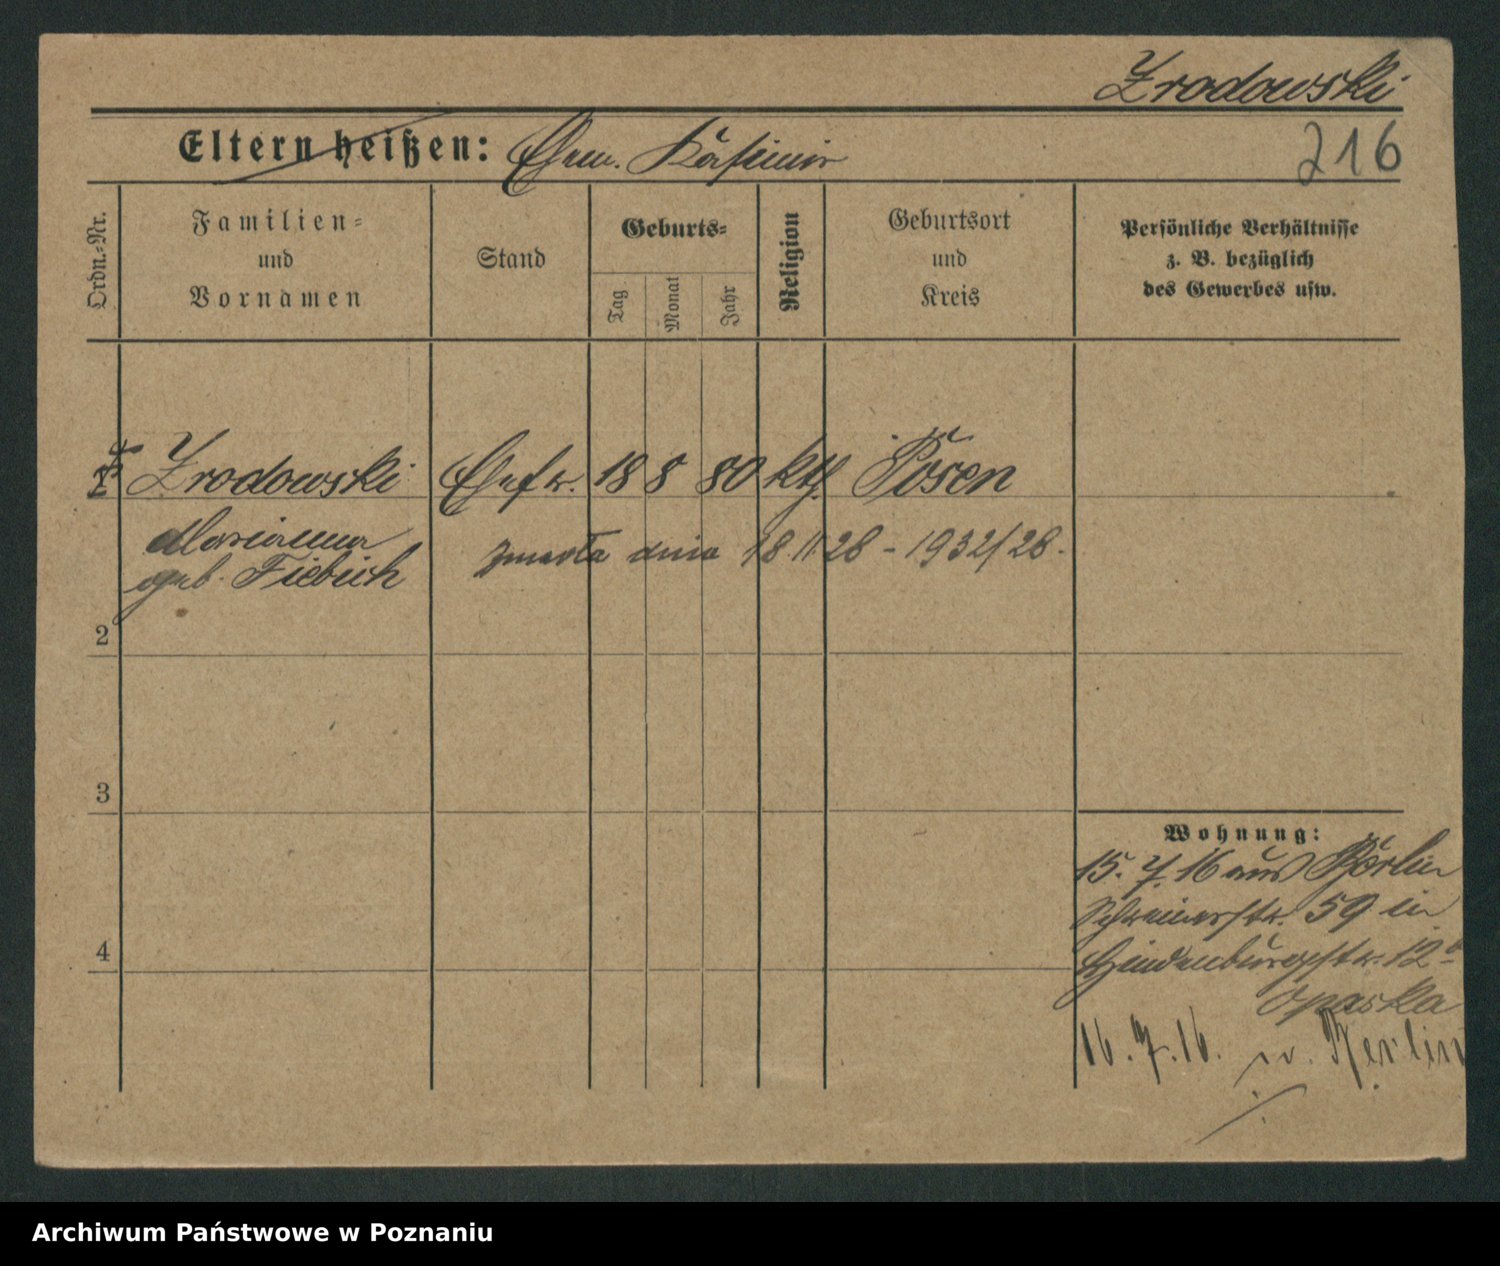 Zrodowski
Eltern heißen: Ehem. Kasimir
216
Ordn.-Nr.
Familien-
und
Vornamen
Stand
Geburts-
Tag
Monat
Jahr
Religion
Geburtsort
und
Kreis
Persönliche Verhältnisse
z. B. bezüglich
des Gewerbes usw.
Zrodowski Ehefr. 18 8 80 kth. Posen
Marianna
geb. Fiebich
zmarła dnia 18.11 28 - 1932/28.
2
3
4
Wohnung:
15. 7. 16 aus Berlin
Schreinerstr. 59 in
Hindenburgstr. 12
Opaska
16.7.16. n. Berlin
Archiwum Państwowe w Poznaniu